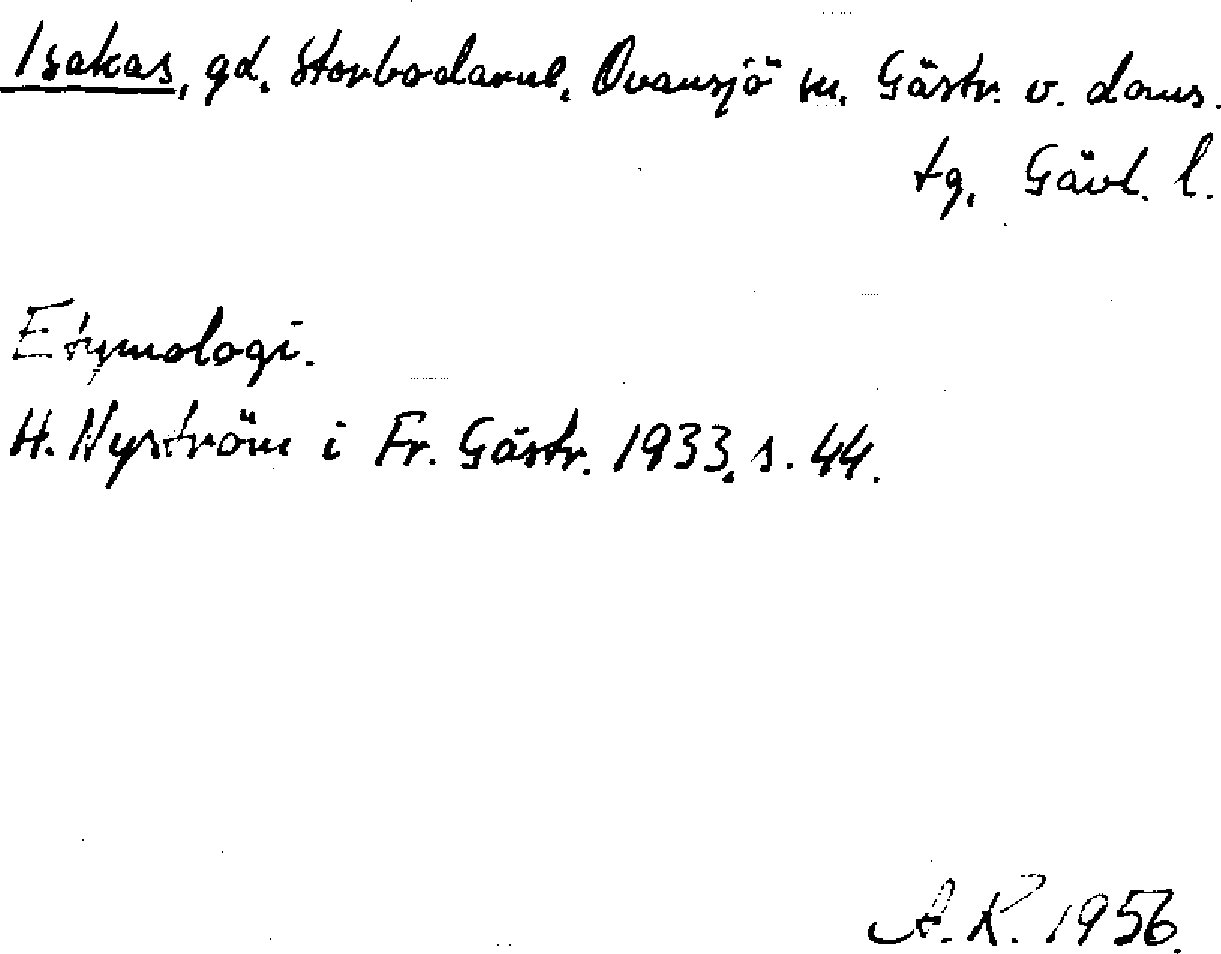 Isakas, gd. Storbodarne, Ovansjö sn. Gästr. v. doms.
tg. Gävl. l.
Etymologi.
H. Nyström i Fr. Gästr. 1933. s. 44.
A. K. 1956.